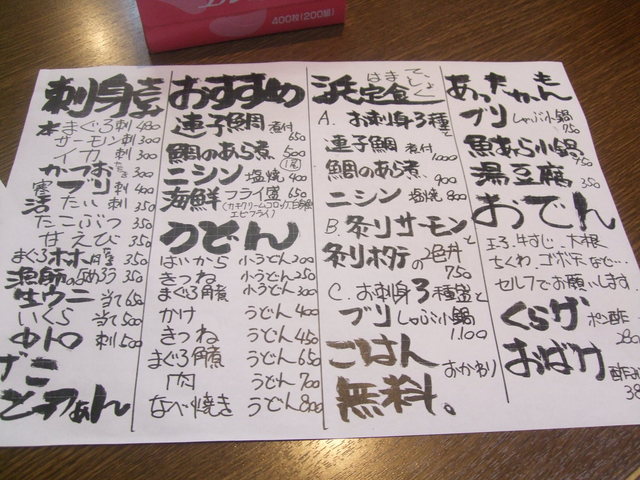 400枚(200組)
刺身
本まぐろ刺 480
サーモン刺 300
イカ刺 300
かつお刺 300
ブリ刺 400
活たい 350
たこぶつ 350
甘えび 350
まぐろホホ
漁師の
生ウニ 当て 650
いくら 当て 500
中トロ 刺 500
おすすめ
連子鯛 煮付 650
鯛のあら煮 500
ニシン 塩焼 400
海鮮フライ盛 650
(カキクリームコロッケ
エビフライ)
うどん
はいから 小うどん 200
きつね 小うどん 250
まぐろ角煮 小うどん 300
かけ うどん 400
きつね うどん 450
まぐろ角煮 うどん 650
肉 うどん 700
なべ焼き うどん 800
浜定食 はまていしょく
A. お刺身3種と
連子鯛 煮付 1000
鯛のあら煮 900
ニシン 塩焼 800
B. 炙りサーモンと
炙りホタテの2色丼 750
C. お刺身3種盛と
ブリしゃぶ小鍋 1.100
ごはん おかわり
無料。
あったかもん
ブリしゃぶ小鍋 750
魚あら小鍋
湯豆腐 350
おでん
玉子.牛すじ.大根
ちくわ.ゴボ天など…
セルフでお願いします
くらげ ポン酢 280
おばけ